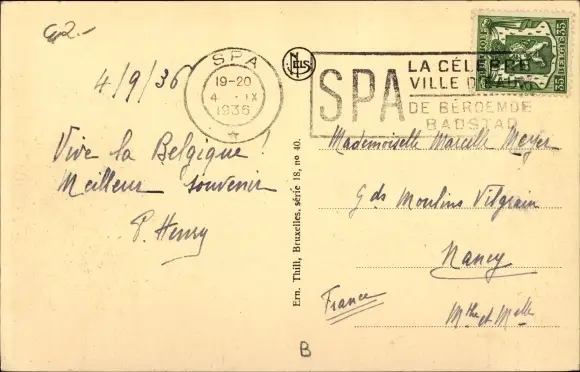 4/9/36
Vive la Belgique !
Meilleur souvenir
P. Henry
SPA
19-20
4 IX
1936
NELS
SPA
LA CÉLÈBRE
VILLE D'EAUX
DE BEROEMDE
BADSTAD
BELGIE 35
Ern. Thill, Bruxelles, série 18, no 40.
Mademoiselle Marcelle Meyer
Gds Moulins Vilgrain
Nancy
France
Mthe et Mlle
B